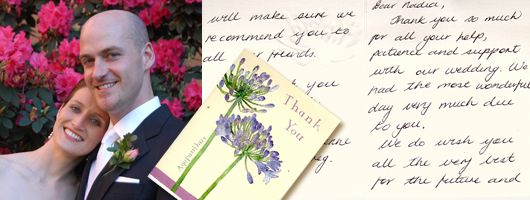 will make sure we
recommend you to
all our friends.
you
Thank
You
Agapanthus
Dear Nadia,
Thank you so much
for all your help,
patience and support
with our wedding. We
had the most wonderful
day very much due
to you.
We do wish you
all the very best
for the future and